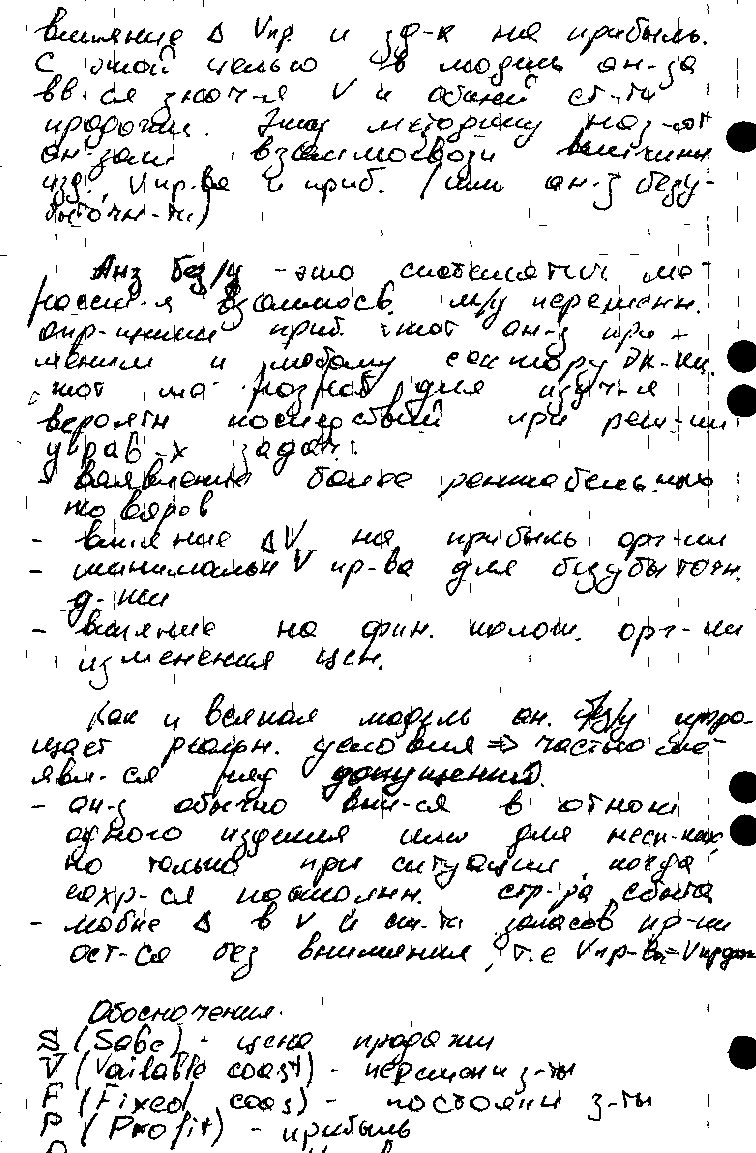 влияние Δ Vпр и зд-к на прибыль.
С этой целью в модель ан-за
вв-ся знач-я V и общей ст-ти
продажи. Эту методику наз-ют
ан-зом взаимосвязи величины
изд., Vпр-ва и приб. (или ан-з безу-
быточн-ти)
Анз без/у - это систематич.
рассм-я взаимосв. м/у переменн.
опр-щими приб. этот ан-з при-
меним к любому сектору эк-ки.
этот для изуч-я
вероятн последствий при реш-ии
управ-х задач:
- выявление более рентабельных
товаров
- влияние ΔV на прибыль орг-ии
- минимальн V пр-ва для безубыточн.
д-ти
- влияние на фин. полож. орг-ии
изменения цен.
Как и всякая модель ан. без/у упро-
щает реальн. условия => частью
явл-ся ряд допущений.
- ан-з обычно вып-ся в отнош
одного изделия или для неск-ких,
но только при ситуации, когда
сохр-ся постоянн. стр-ра сбыта
- любые Δ в V и ст-ти запасов пр-ии
ост-ся без внимания, т.е Vпр-ва=Vпродаж
Обозначения.
S (Sabe) - цена продажи
V (Vailable coast) - переменн з-ты
F (Fixed coas) - постоянн з-ты
P (Profit) - прибыль